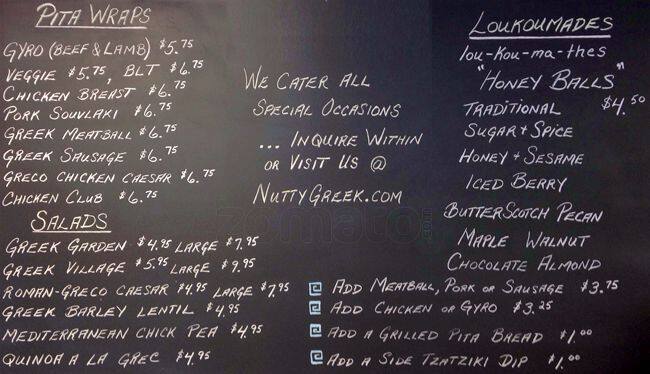 PITA WRAPS
GYRO (BEEF & LAMB) $5.75
VEGGIE $5.75, BLT $6.75
CHICKEN BREAST $6.75
PORK SOUVLAKI $6.75
GREEK MEATBALL $6.75
GREEK SAUSAGE $6.75
GRECO CHICKEN CAESAR $6.75
CHICKEN CLUB $6.75
SALADS
GREEK GARDEN $4.95 LARGE $7.95
GREEK VILLAGE $5.95 LARGE $9.95
ROMAN-GRECO CAESAR $4.95 LARGE $7.95
GREEK BARLEY LENTIL $4.95
MEDITERRANEAN CHICK PEA $4.95
QUINOA A LA GREC $4.95
WE CATER ALL
SPECIAL OCCASIONS
... INQUIRE WITHIN
OR VISIT US @
NUTTYGREEK.COM
LOUKOUMADES
lou-Kou-ma-thes
"HONEY BALLS"
TRADITIONAL $4.50
SUGAR & SPICE
HONEY & SESAME
ICED BERRY
BUTTERSCOTCH PECAN
MAPLE WALNUT
CHOCOLATE ALMOND
ADD MEATBALL, PORK OR SAUSAGE $3.75
ADD CHICKEN OR GYRO $3.25
ADD A GRILLED PITA BREAD $1.00
ADD A SIDE TZATZIKI DIP $1.00
zomato